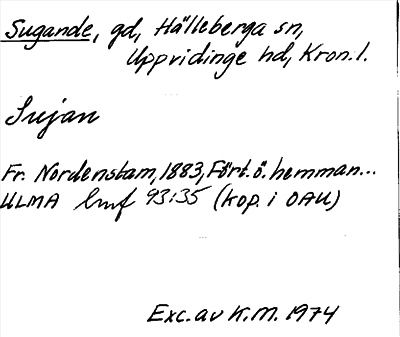 Sugande, gd, Hälleberga sn,
Uppvidinge hd, Kron.l.
Sujan
Fr. Nordenstam, 1883, Fört. ö. hemman...
ULMA hmf 93:35 (kop. i OAU)
Exc. av K.M. 1974